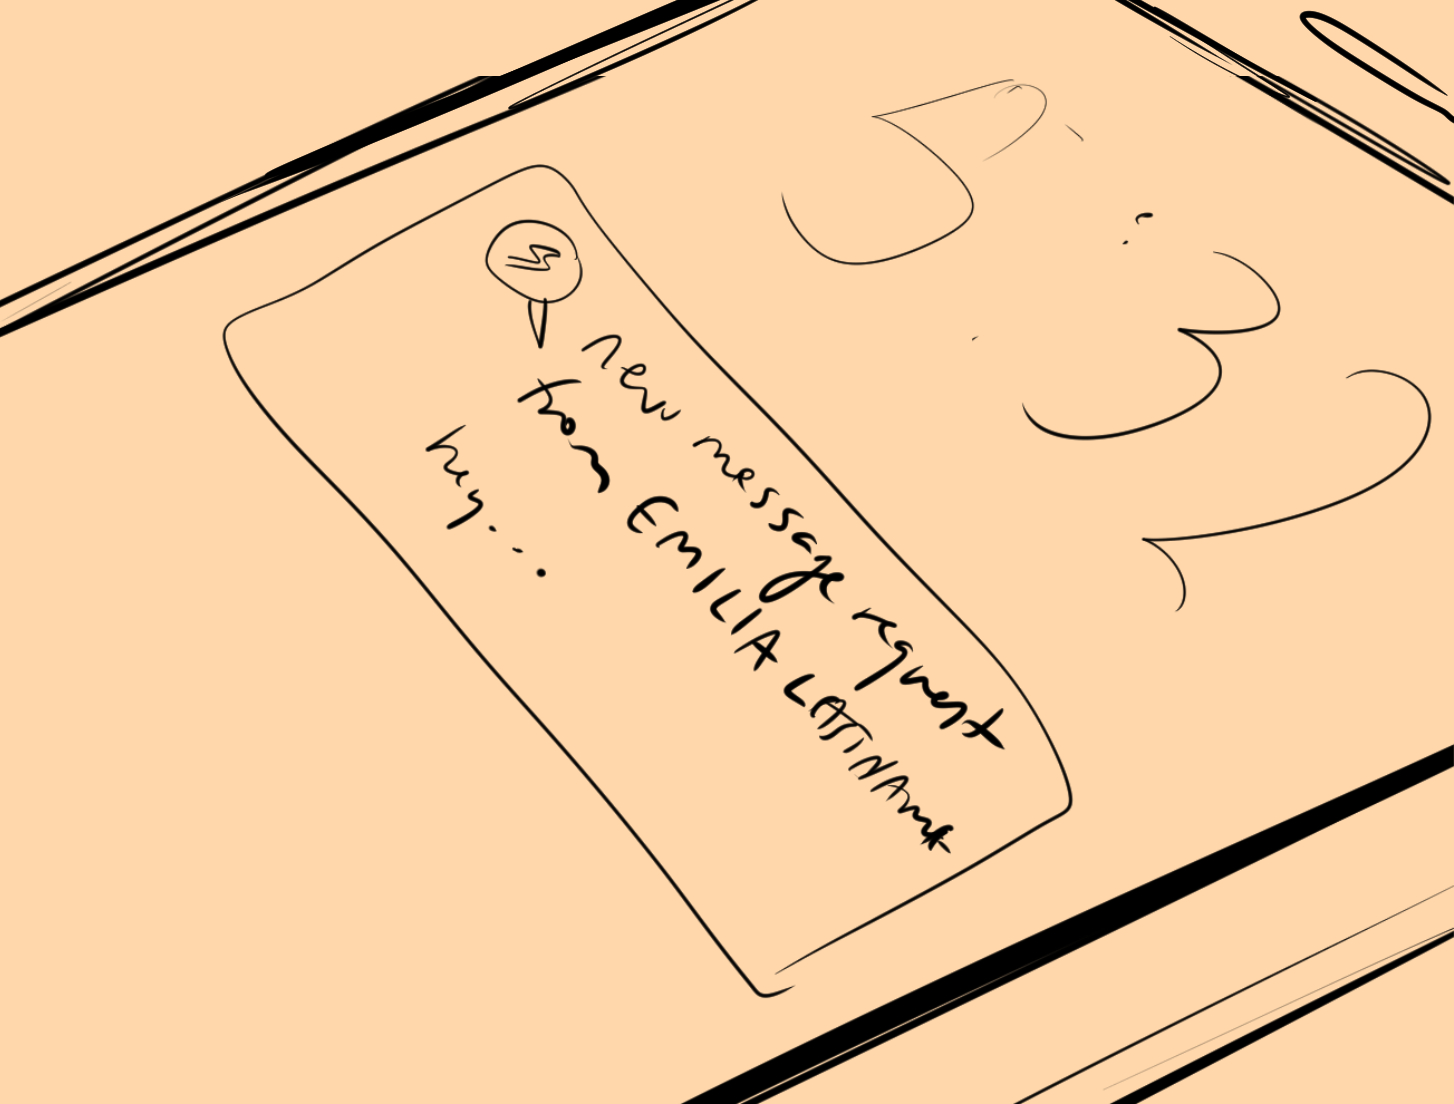 new message request
from EMILIA LASTNAME
hey...